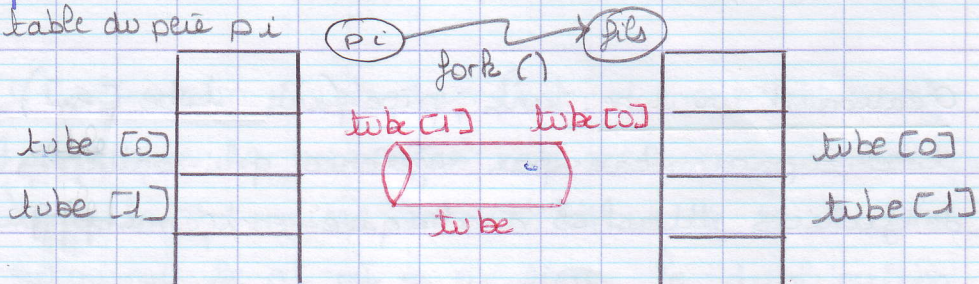 table du père pi
pi
fils
fork ()
tube [1] tube [0]
tube [0]
tube [1]
tube
tube [0]
tube [1]